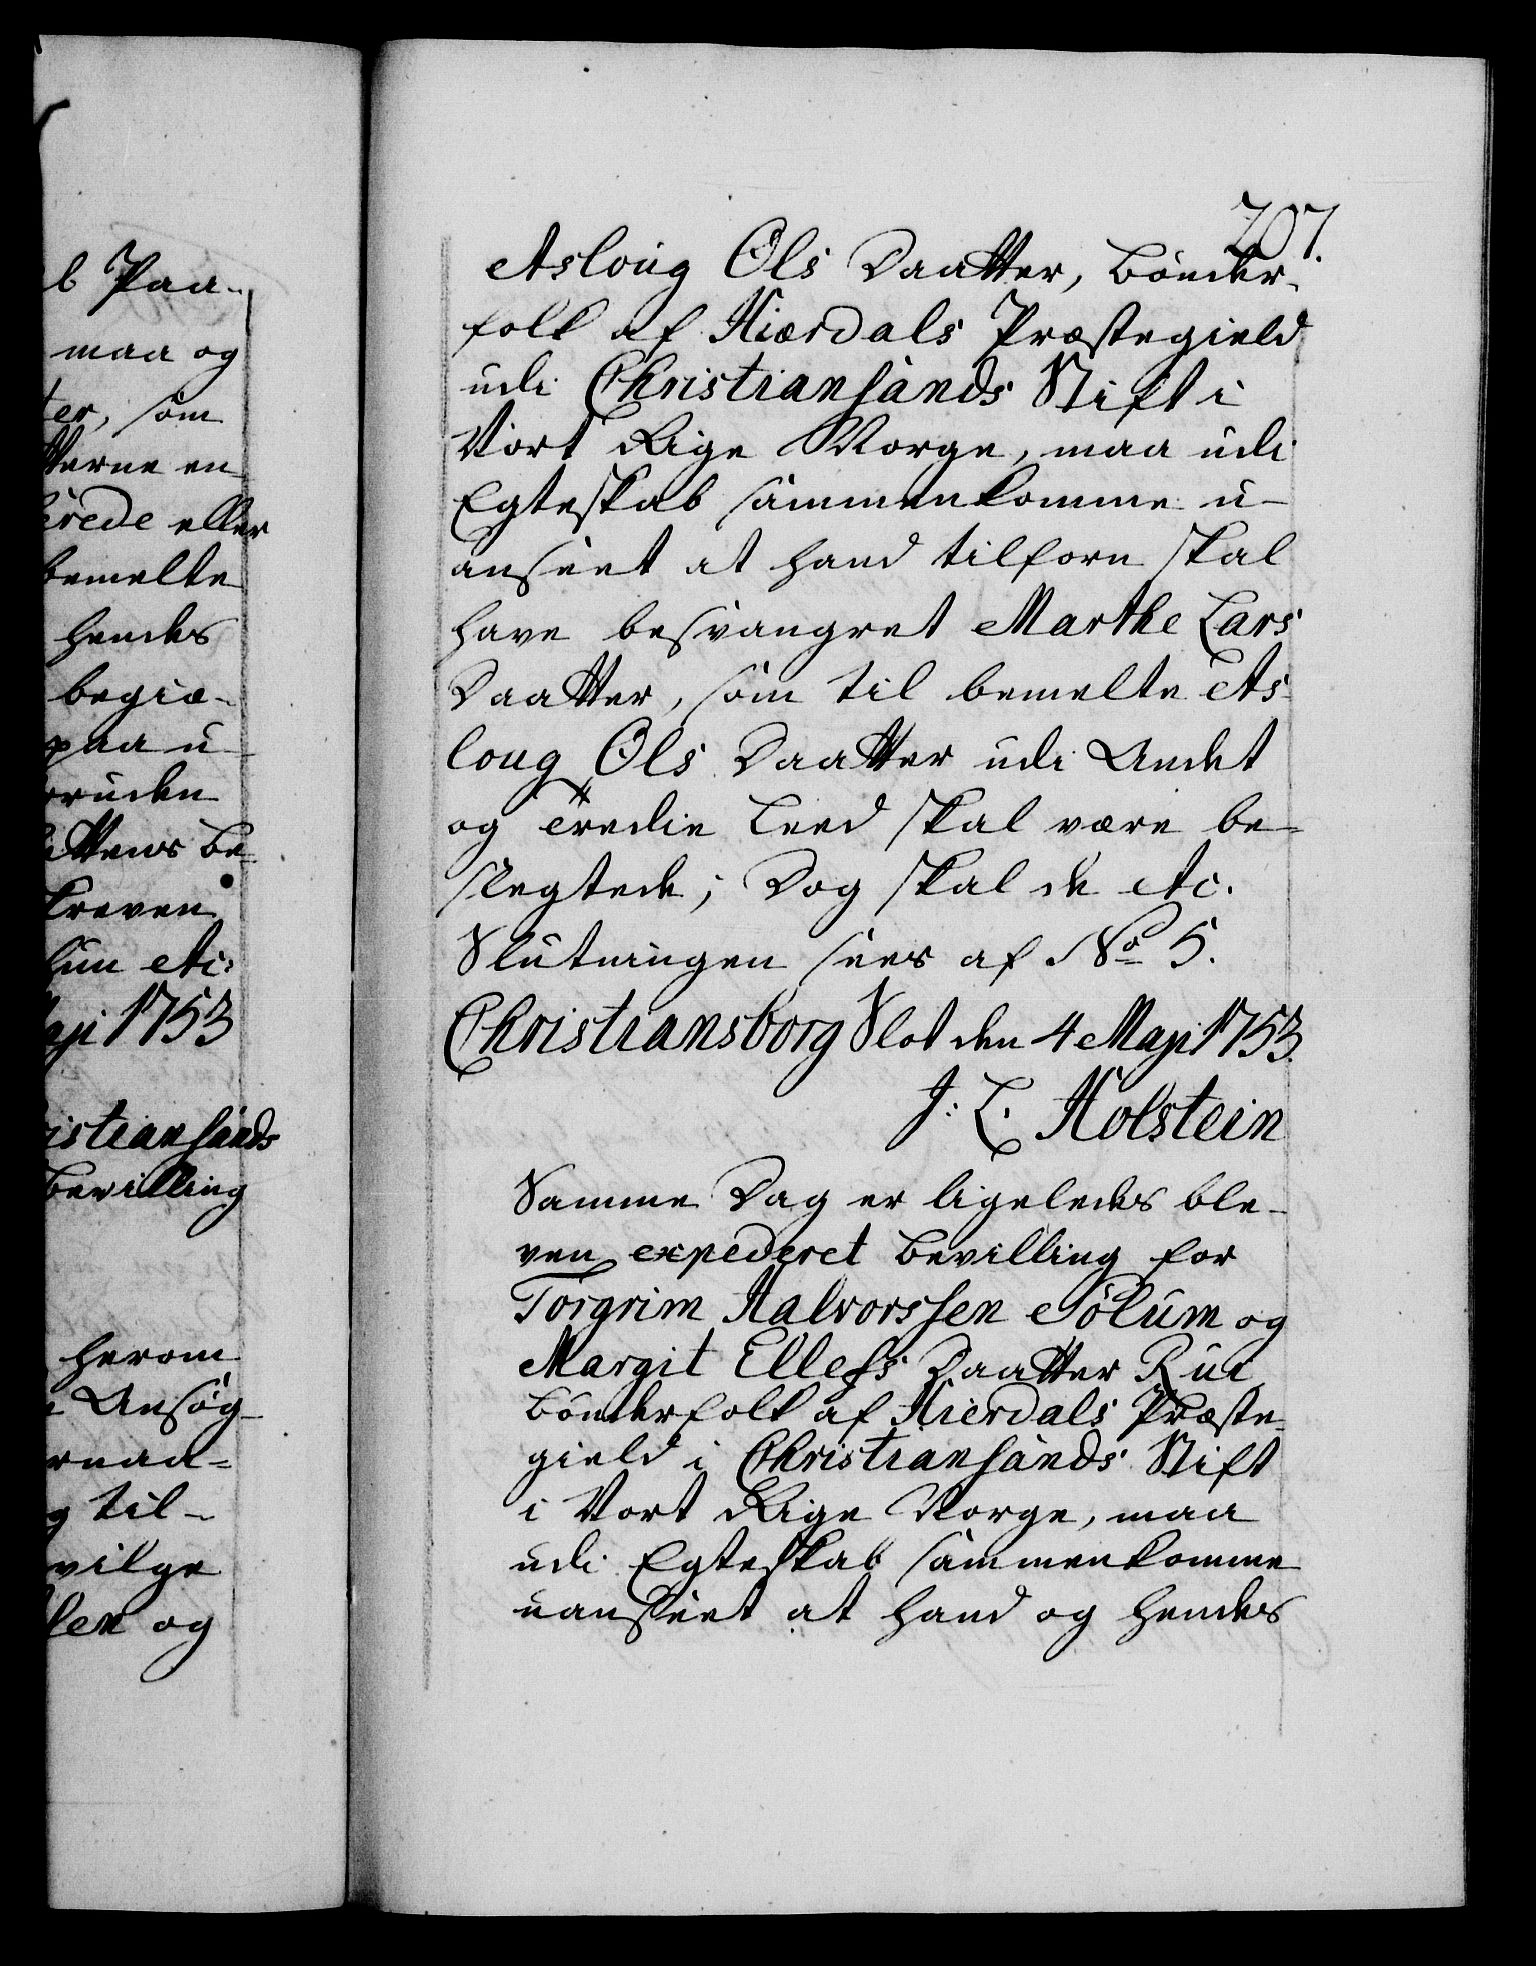 b Paa-
maa og
ter, som
tterne en
erede eller
bemelte
hendes
begiæ-
paa u-
bruden
attens Be-
kreven
hun etc:
Maji 1753
Christiansands
Bevilling
herom
e Ansøg-
rnaa-
g til-
vilge
len og
207.
Asloug Ols Daatter, Bønder-
folk af Hiærdals Præstegield
udi Christiansands Stift i
Vort Rige Norge, maa udi
Egteskab sammenkomme u-
anseet at hand tilforn skal
have besvangret Marthe Lars
Daatter, som til bemelte As-
loug Ols Daatter udi Andet
og Tredie Leed skal være be-
slegtede; Dog skal de etc.
Slutningen sees af No 5.
Christiansborg Slot den 4 Maji 1753.
J: L. Holstein
Samme Dag er ligeledes ble-
ven expederet Bevilling for
Torgrim Halvorssen Solum og
Margit Ellefs Daatter Rui
Bønderfolk af Hierdals Præste-
gield i Christiansands Stift
i Vort Rige Norge, maa
udi Egteskab sammenkomme
uanseet at hand og hendes